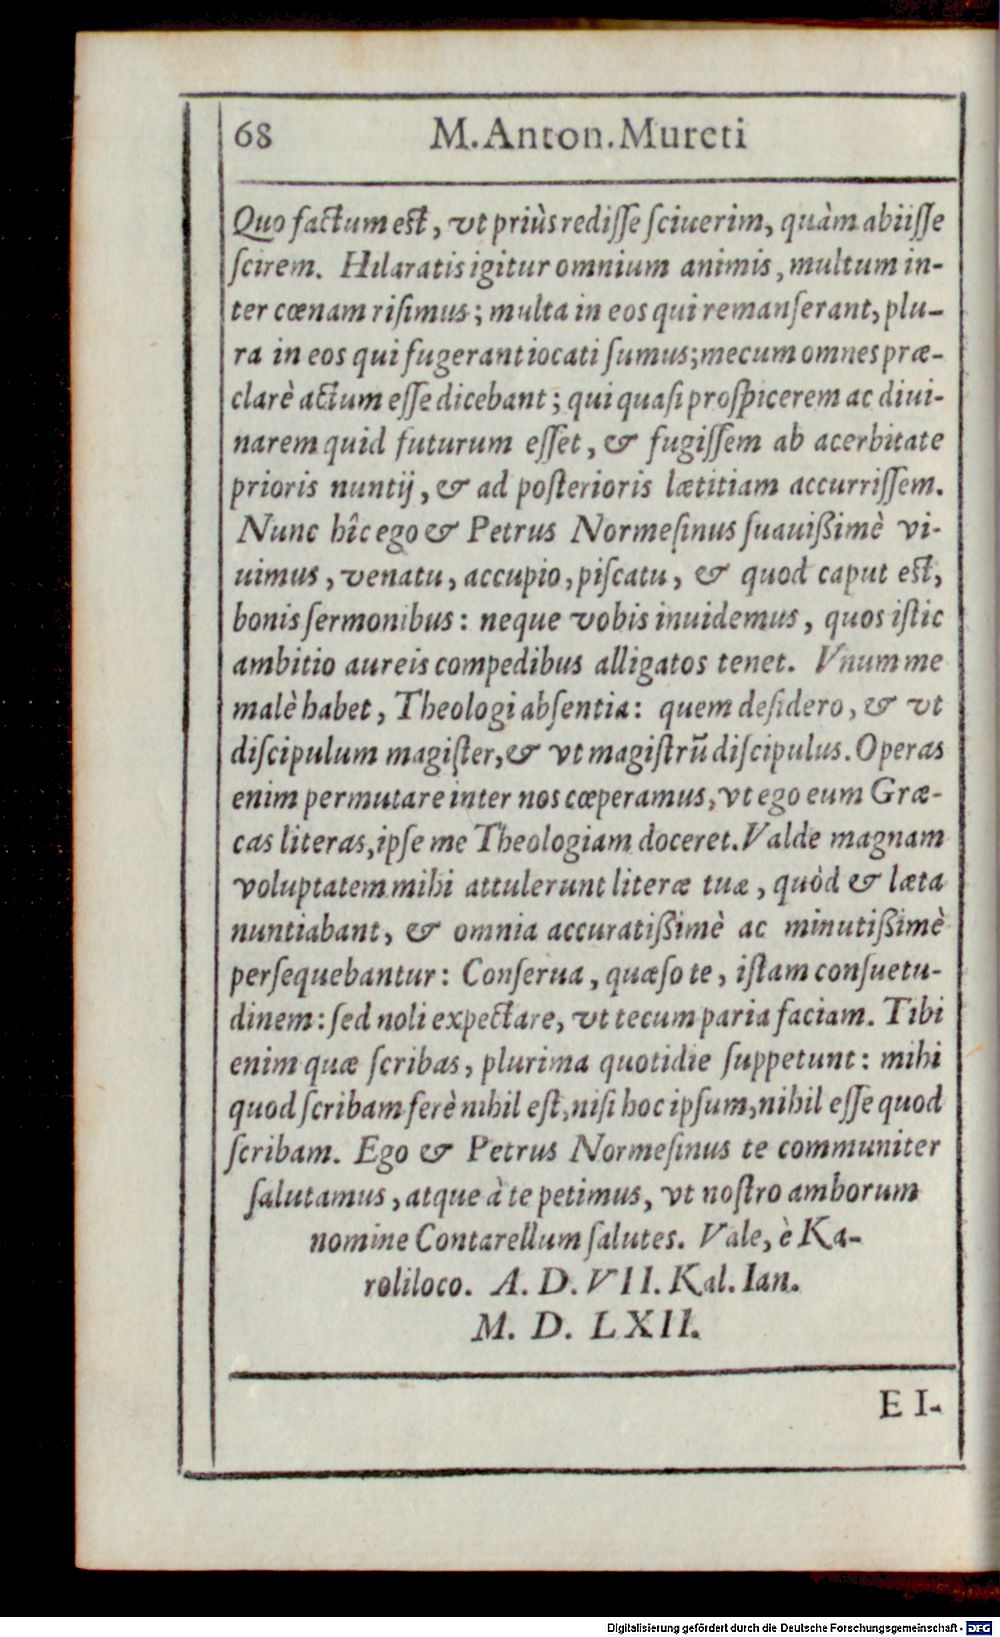 68 M. Anton. Mureti
Quo factum est, vt priùs rediſſe ſciuerim, quàm abiiſſe
ſcirem. Hilaratis igitur omnium animis, multum in-
ter cœnam riſimus; multa in eos qui remanſerant, plu-
ra in eos qui fugerant iocati ſumus; mecum omnes præ-
clarè actum eſſe dicebant; qui quaſi proſpicerem ac diui-
narem quid futurum eſſet, & fugiſſem ab acerbitate
prioris nuntij, & ad poſterioris lætitiam accurriſſem.
Nunc hîc ego & Petrus Normeſinus ſuauißimè vi-
uimus, venatu, accupio, piſcatu, & quod caput est,
bonis ſermonibus: neque vobis inuidemus, quos iſtic
ambitio aureis compedibus alligatos tenet. Vnum me
malè habet, Theologi abſentia: quem deſidero, & vt
diſcipulum magiſter, & vt magiſtrū diſcipulus. Operas
enim permutare inter nos cœperamus, vt ego eum Græ-
cas literas, ipſe me Theologiam doceret. Valde magnam
voluptatem mihi attulerunt literæ tuæ, quòd & læta
nuntiabant, & omnia accuratißimè ac minutißimè
perſequebantur: Conſerua, quæſo te, iſtam conſuetu-
dinem: ſed noli expectare, vt tecum paria faciam. Tibi
enim quæ ſcribas, plurima quotidie ſuppetunt: mihi
quod ſcribam ferè nihil eſt, niſi hoc ipſum, nihil eſſe quod
ſcribam. Ego & Petrus Normeſinus te communiter
ſalutamus, atque à te petimus, vt noſtro amborum
nomine Contarellum ſalutes. Vale, è Ka-
roliloco. A. D. VII. Kal. Ian.
M. D. LXII.
E I-
Digitalisierung gefördert durch die Deutsche Forschungsgemeinschaft - DFG